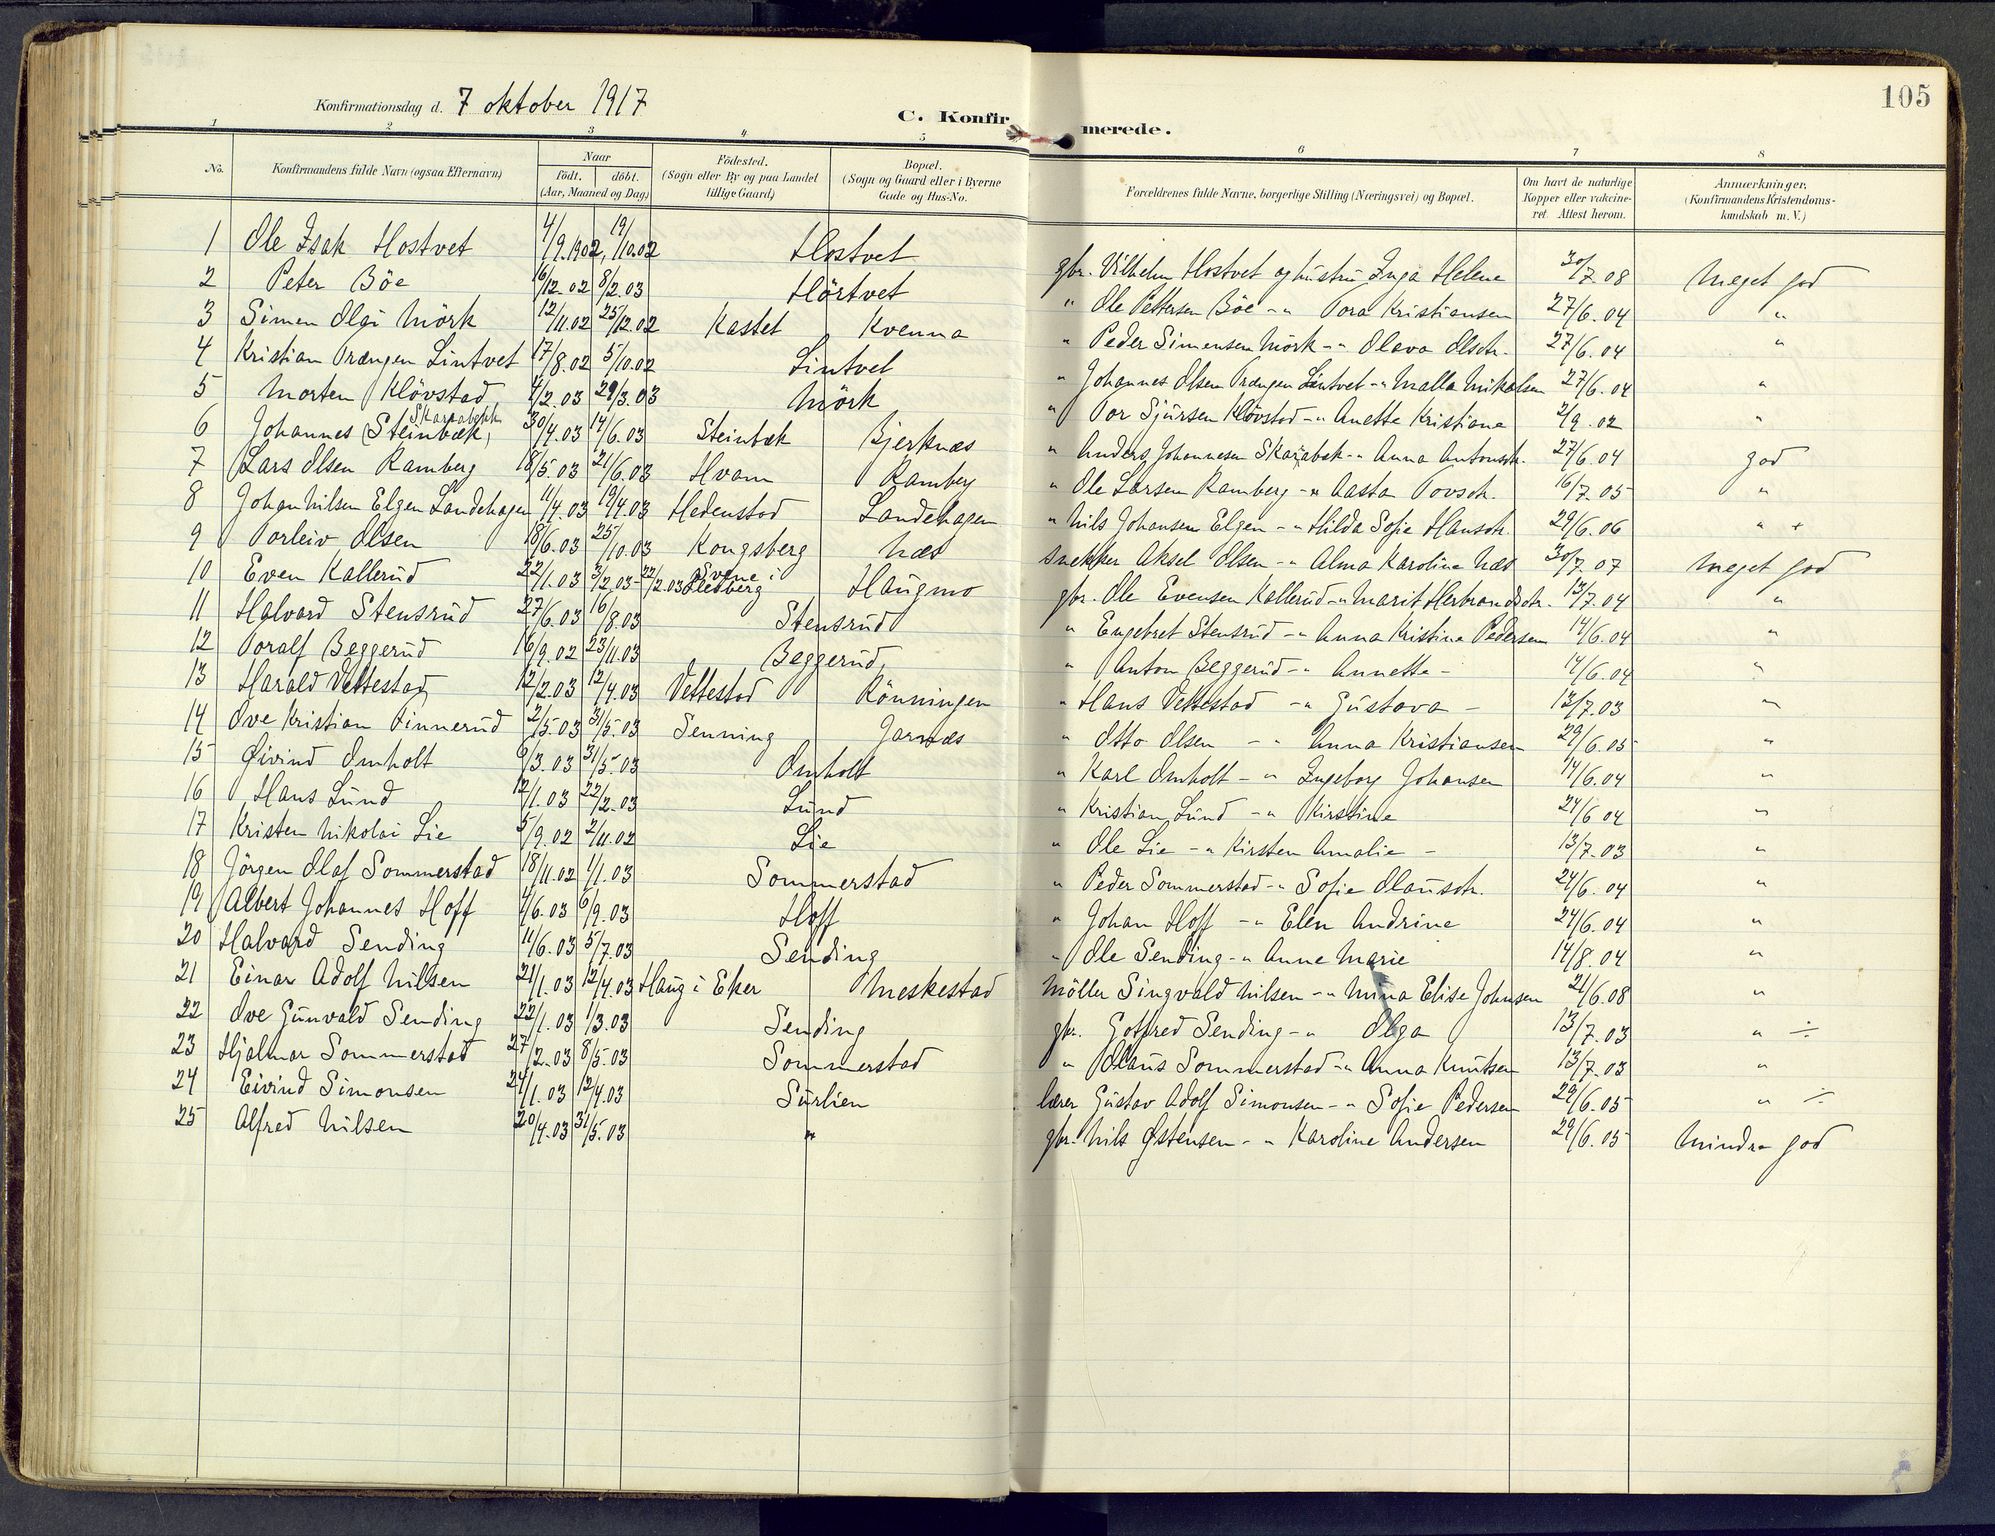 105
Konfirmationsdag d. 7 oktober 1917
C. Konfirmerede.
1 2 3 4 5 6 7 8
No. Konfirmandens fulde Navn (ogsaa Efternavn) Naar födt. döbt. (Aar, Maaned og Dag) Födested. (Sogn eller By og paa Landet tillige Gaard) Bopæl. (Sogn og Gaard eller i Byerne Gade og Hus-No. Forældrenes fulde Navne, borgerlige Stilling (Næringsvei) og Bopæl. Om havt de naturlige Kopper eller vakcineret. Attest herom. Anmærkninger. (Konfirmandens Kristendomskundskab m. V.)
1 Ole Isak Hostvet 4/9.1902 19/10.02 Hostvet gbr. Vilhelm Hostvet og hustru Inga Helene 30/7 08 Meget god
2 Peter Böe 16/12.02 8/2.03 Hörtvet " Ole Pettersen Böe -"- Tora Kristiansen 27/6.04 "
3 Simen Olai Mörk 12/11.02 25/12.02 Kastet Kvenna " Peder Simensen Mörk -"- Olava Olsdtr. 27/6.04 "
4 Kristian Prængen Lintvet 17/8.02 5/10.02 Lintvet " Johannes Olsen Prængen Lintvet -"- Malla Mikalsen 27/6.04 "
5 Morten Klövstad 4/2.03 29/3.03 Mörk " Tor Sjursen Klövstad -"- Anette Kristiane 2/9.02 "
6 Johannes Steinbæk, Skarabækk 30/4.03 14/6.03 Steinbæk Bjerknæs " Anders Johannesen Skarabæk -"- Anna Antonsdtr. 27/6.04 god
7 Lars Olsen Ramberg 18/5.03 21/6.03 Hvam Ramberg " Ole Larsen Ramberg -"- Aasta Tovsdtr. 16/7.05 "
8 Johan Nilsen Elgen Landehagen 11/4.03 19/4.03 Hedenstad Landehagen " Nils Johansen Elgen -"- Hilda Sofie Hansdtr. 29/6.06 " +
9 Torleiv Olsen 18/6.03 25/10.03 Kongsberg Næs snekker Aksel Olsen -"- Alma Karoline Næs 30/7.07 Meget god
10 Even Kallerud 22/1.03 3/2.03 - 22/2.03 Svene i Flesberg Haugmo gbr. Ole Evensen Kallerud -"- Marit Herbrandsdtr. 13/7.04 "
11 Halvard Stensrud 27/6.03 16/8.03 Stensrud " Engebret Stensrud -"- Anna Kristine Pedersen 14/6.04 "
12 Toralf Beggerud 16/9.02 23/11.03 Beggerud, " Anton Beggerud -"- Annette - 14/6.04 "
13 Harald Vettestad 12/2.03 12/4.03 Vettestad Rönningen " Hans Vettestad -"- Gustava - 13/7.03 "
14 Ove Kristian Tinnerud 2/5.03 31/5.03 Senning Jarnæs " Otto Olsen -"- Anna Kristiansen 29/6.05 "
15 Øivind Omholt 6/3.03 31/5.03 Omholt " Karl Omholt -"- Ingeborg Johansen 14/6.04 "
16 Hans Lund 12/1.03 22/2.03 Lund " Kristian Lund -"- Kirstine 24/6 04 "
17 Kristen Nikolai Lie 5/9.02 2/11.02 Lie " Ole Lie -"- Kirsten Amalie - 13/7.03 "
18 Jörgen Olaf Sommerstad 18/11.02 1/1.03 Sommerstad " Peder Sommerstad -"- Sofie Olausdtr. 24/6.04 "
19 Albert Johannes Hoff 4/6.03 6/9.03 Hoff " Johan Hoff -"- Elen Andrine 24/6.04 "
20 Halvard Sending 11/6.03 5/7.03 Sending " Ole Sending -"- Anne Marie 14/8.04 "
21 Einar Adolf Nilsen 21/1.03 12/4.03 Haug i Eker Meskestad Möller Singvald Nilsen -"- Mina Elise Johnsen 21/6.08 "
22 Ove Gunvald Sending 22/1.03 1/3.03 Sending gbr. Gotfred Sending -"- Olga 13/7.03 " ÷
23 Hjalmar Sommerstad 27/2.03 8/5.03 Sommerstad " Olaus Sommerstad -"- Anna Knutsen 13/7.03 "
24 Eivind Simonsen 24/1.03 12/4.03 Surlien lærer Gustav Adolf Simonsen -"- Sofie Pedersen 29/6.05 " ÷
25 Alfred Nilsen 20/4.03 31/5.03 " gbr. Nils Østensen -"- Karoline Andersen 29/6.05 Mindre god